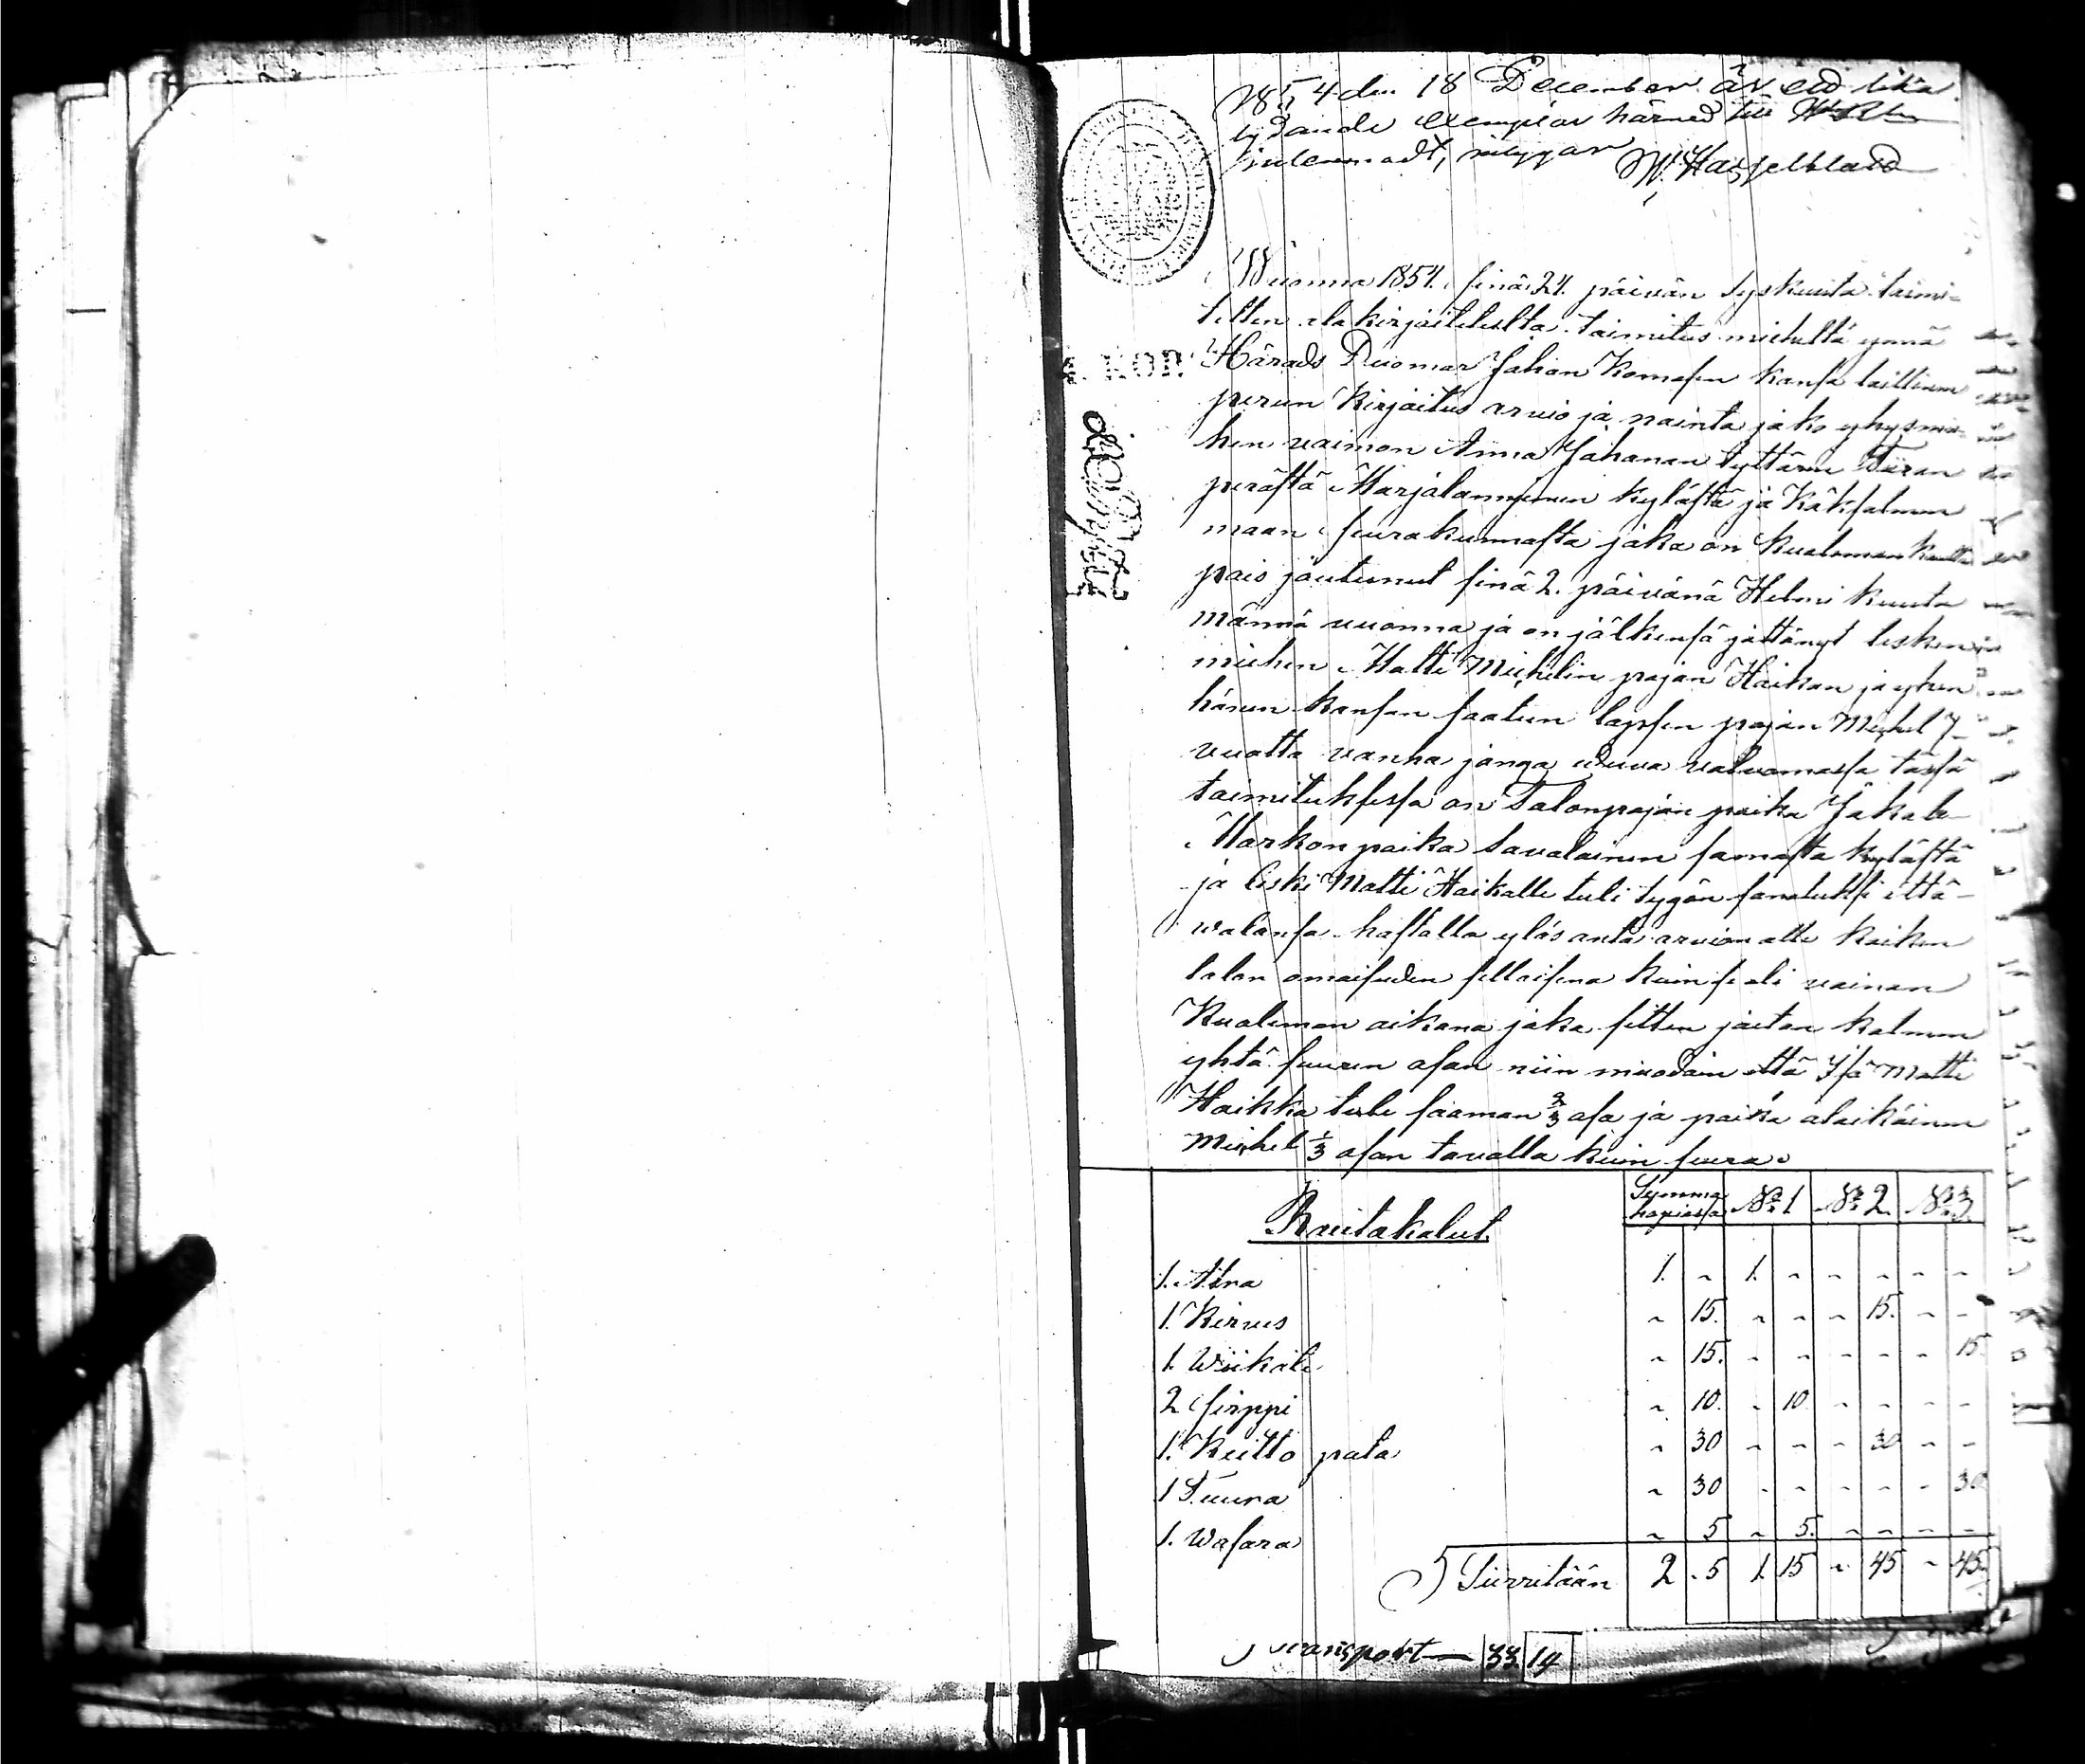 1854 den 18 December är ett lika
lydande exemplar härmed till
inlemnadt, intygar
W. Hasselbladd
Wuonna 1854. sinä 24. päivän syskuuta toimi-
tettin ala kirjoitetulta toimitus mieheltä ynnä
Härads Duomar Johan Komosen kansa laillinen
perun Kirjoitus arvio ja nainta jako yhysmie-
hen vaimon Anna Johanan tyttären Tiiran
perästä Marjalanmjemen kylästä ja Käkisalmen
maan seurakunnasta joka on kualeman kautta
pois joutunut sinä 2. päivänä Helmi kuuta
männä vuonna ja on jälkensä jättänyt lesken
miehen Matti Michelin pojan Haikan ja yhen
hänen kansan saatun lapsen pojan Michel 7
vuotta vanha jonga uvuva valvomassa tässä
toimituksessa on Talonpojan poika Jakob
Markon poika Savalainen samasta kylästä
ja leski Matti Haikalle tuli tygön sanotuksi että
walansa hastalla ylös anta arvion alle kaiken
talon omaisuden sellaisena kuin se oli vainan
Kualeman aikana joka sitten jaetan kolmen
yhtä suuren osan niin muodoin että Isä Matti
Haikka tule saaman 2/3 osa ja poika alaikäinen
Michel 1/3 osan tavalla kuin seura.
Rautakalut. Summa hopiassa No 1 No 2. No 3.
1. Atra 1. - 1. - - - - -
1. Kirves - 15. - - - 15. - -
1. Wiikate - 15. - - - - - 15.
2 sirppi - 10. - 10 - - - -
1. Keitto pata - 30 - - - 30 - -
1 Tuura - 30 - - - - - 30
1. Wasara - 5 - 5. - - - -
Siirritään 2 5 1. 15 - 45 - 45.
Transport — 33 14